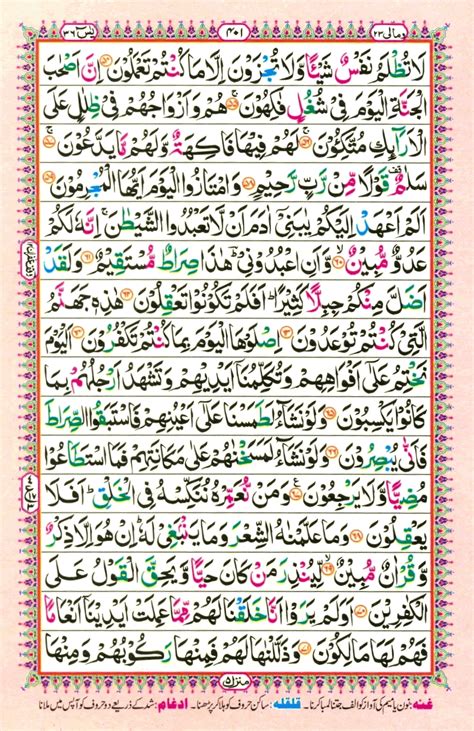 ومالی ٢٣ ٤٠١ یٰسٓ ٣٦
لَا تُظْلَمُ نَفْسٌ شَيْـًٔا وَّلَا تُجْزَوْنَ اِلَّا مَا كُنْتُمْ تَعْمَلُوْنَ ﴿٥٤﴾ اِنَّ اَصْحٰبَ
الْجَنَّةِ الْيَوْمَ فِيْ شُغُلٍ فٰكِهُوْنَ ﴿٥٥﴾ هُمْ وَاَزْوَاجُهُمْ فِيْ ظِلٰلٍ عَلَى
الْاَرَآئِكِ مُتَّكِـُٔوْنَ ﴿٥٦﴾ لَهُمْ فِيْهَا فَاكِهَةٌ وَّلَهُمْ مَّا يَدَّعُوْنَ ﴿٥٧﴾
سَلٰمٌ قَوْلًا مِّنْ رَّبٍّ رَّحِيْمٍ ﴿٥٨﴾ وَامْتَازُوا الْيَوْمَ اَيُّهَا الْمُجْرِمُوْنَ ﴿٥٩﴾
اَلَمْ اَعْهَدْ اِلَيْكُمْ يٰبَنِيْٓ اٰدَمَ اَنْ لَّا تَعْبُدُوا الشَّيْطٰنَ اِنَّهٗ لَكُمْ
عَدُوٌّ مُّبِيْنٌ ﴿٦٠﴾ وَّاَنِ اعْبُدُوْنِيْ هٰذَا صِرَاطٌ مُّسْتَقِيْمٌ ﴿٦١﴾ وَلَقَدْ
اَضَلَّ مِنْكُمْ جِبِلًّا كَثِيْرًا اَفَلَمْ تَكُوْنُوْا تَعْقِلُوْنَ ﴿٦٢﴾ هٰذِهٖ جَهَنَّمُ
الَّتِيْ كُنْتُمْ تُوْعَدُوْنَ ﴿٦٣﴾ اِصْلَوْهَا الْيَوْمَ بِمَا كُنْتُمْ تَكْفُرُوْنَ ﴿٦٤﴾ اَلْيَوْمَ
نَخْتِمُ عَلٰٓى اَفْوَاهِهِمْ وَتُكَلِّمُنَآ اَيْدِيْهِمْ وَتَشْهَدُ اَرْجُلُهُمْ بِمَا
كَانُوْا يَكْسِبُوْنَ ﴿٦٥﴾ وَلَوْ نَشَآءُ لَطَمَسْنَا عَلٰٓى اَعْيُنِهِمْ فَاسْتَبَقُوا الصِّرَاطَ
فَاَنّٰى يُبْصِرُوْنَ ﴿٦٦﴾ وَلَوْ نَشَآءُ لَمَسَخْنٰهُمْ عَلٰى مَكَانَتِهِمْ فَمَا اسْتَطَاعُوْا
مُضِيًّا وَّلَا يَرْجِعُوْنَ ﴿٦٧﴾ وَمَنْ نُّعَمِّرْهُ نُنَكِّسْهُ فِي الْخَلْقِ اَفَلَا
يَعْقِلُوْنَ ﴿٦٨﴾ وَمَا عَلَّمْنٰهُ الشِّعْرَ وَمَا يَنْۢبَغِيْ لَهٗ اِنْ هُوَ اِلَّا ذِكْرٌ
وَّقُرْاٰنٌ مُّبِيْنٌ ﴿٦٩﴾ لِّيُنْذِرَ مَنْ كَانَ حَيًّا وَّيَحِقَّ الْقَوْلُ عَلَى
الْكٰفِرِيْنَ ﴿٧٠﴾ اَوَلَمْ يَرَوْا اَنَّا خَلَقْنَا لَهُمْ مِّمَّا عَمِلَتْ اَيْدِيْنَآ اَنْعَامًا
فَهُمْ لَهَا مٰلِكُوْنَ ﴿٧١﴾ وَذَلَّلْنٰهَا لَهُمْ فَمِنْهَا رَكُوْبُهُمْ وَمِنْهَا
منزل ٥
غنه: نون یا میم کی آواز کو الف جتنا لمبا کرنا۔ قلقله: ساکن حروف کو ہلا کر پڑھنا۔ ادغام: شد کے ذریعے دو حروف کو آپس میں ملانا